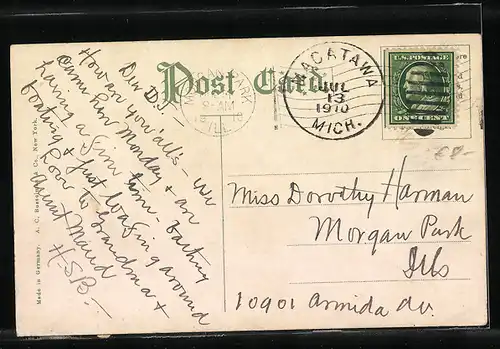 Post Card
MACATAWA
JUL
13
1910
MICH.
MORGAN PARK
8-AM
ILL.
U.S. POSTAGE
ONE CENT
€8-
Dear D.,
How are you'alls - We
came here Monday & are
having a fine time - bathing
boating & just lazing around
Love to Grandma &
Aunt Maud
H.S.B. -
Miss Dorothy Harman
Morgan Park
Ills
10901 Armida av.
Made in Germany. A. C. Co., New York.